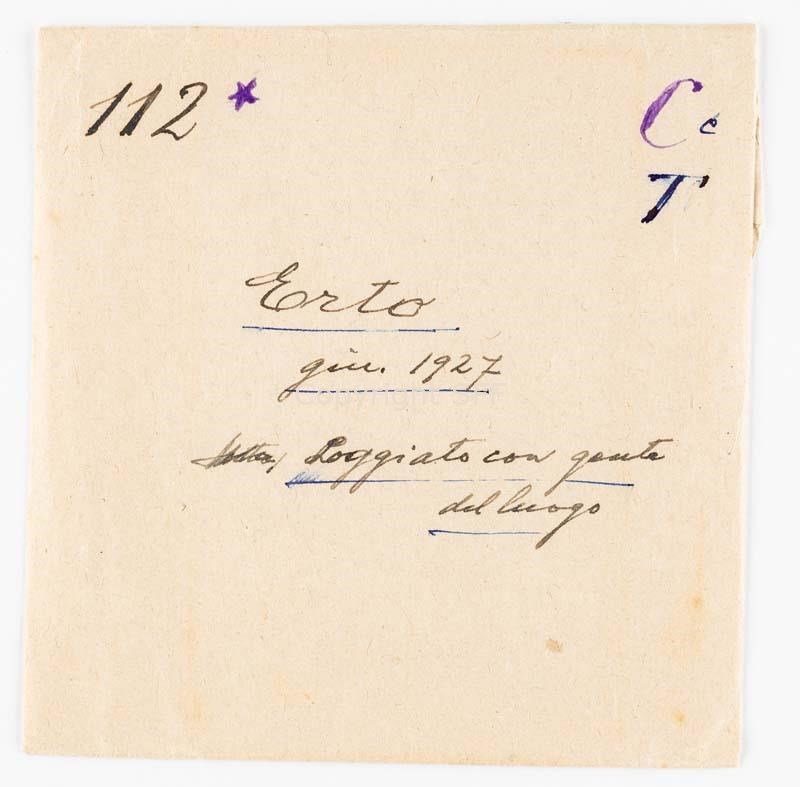 112 * C c
T
Erto
giu. 1927
Loggiato con gente
del luogo